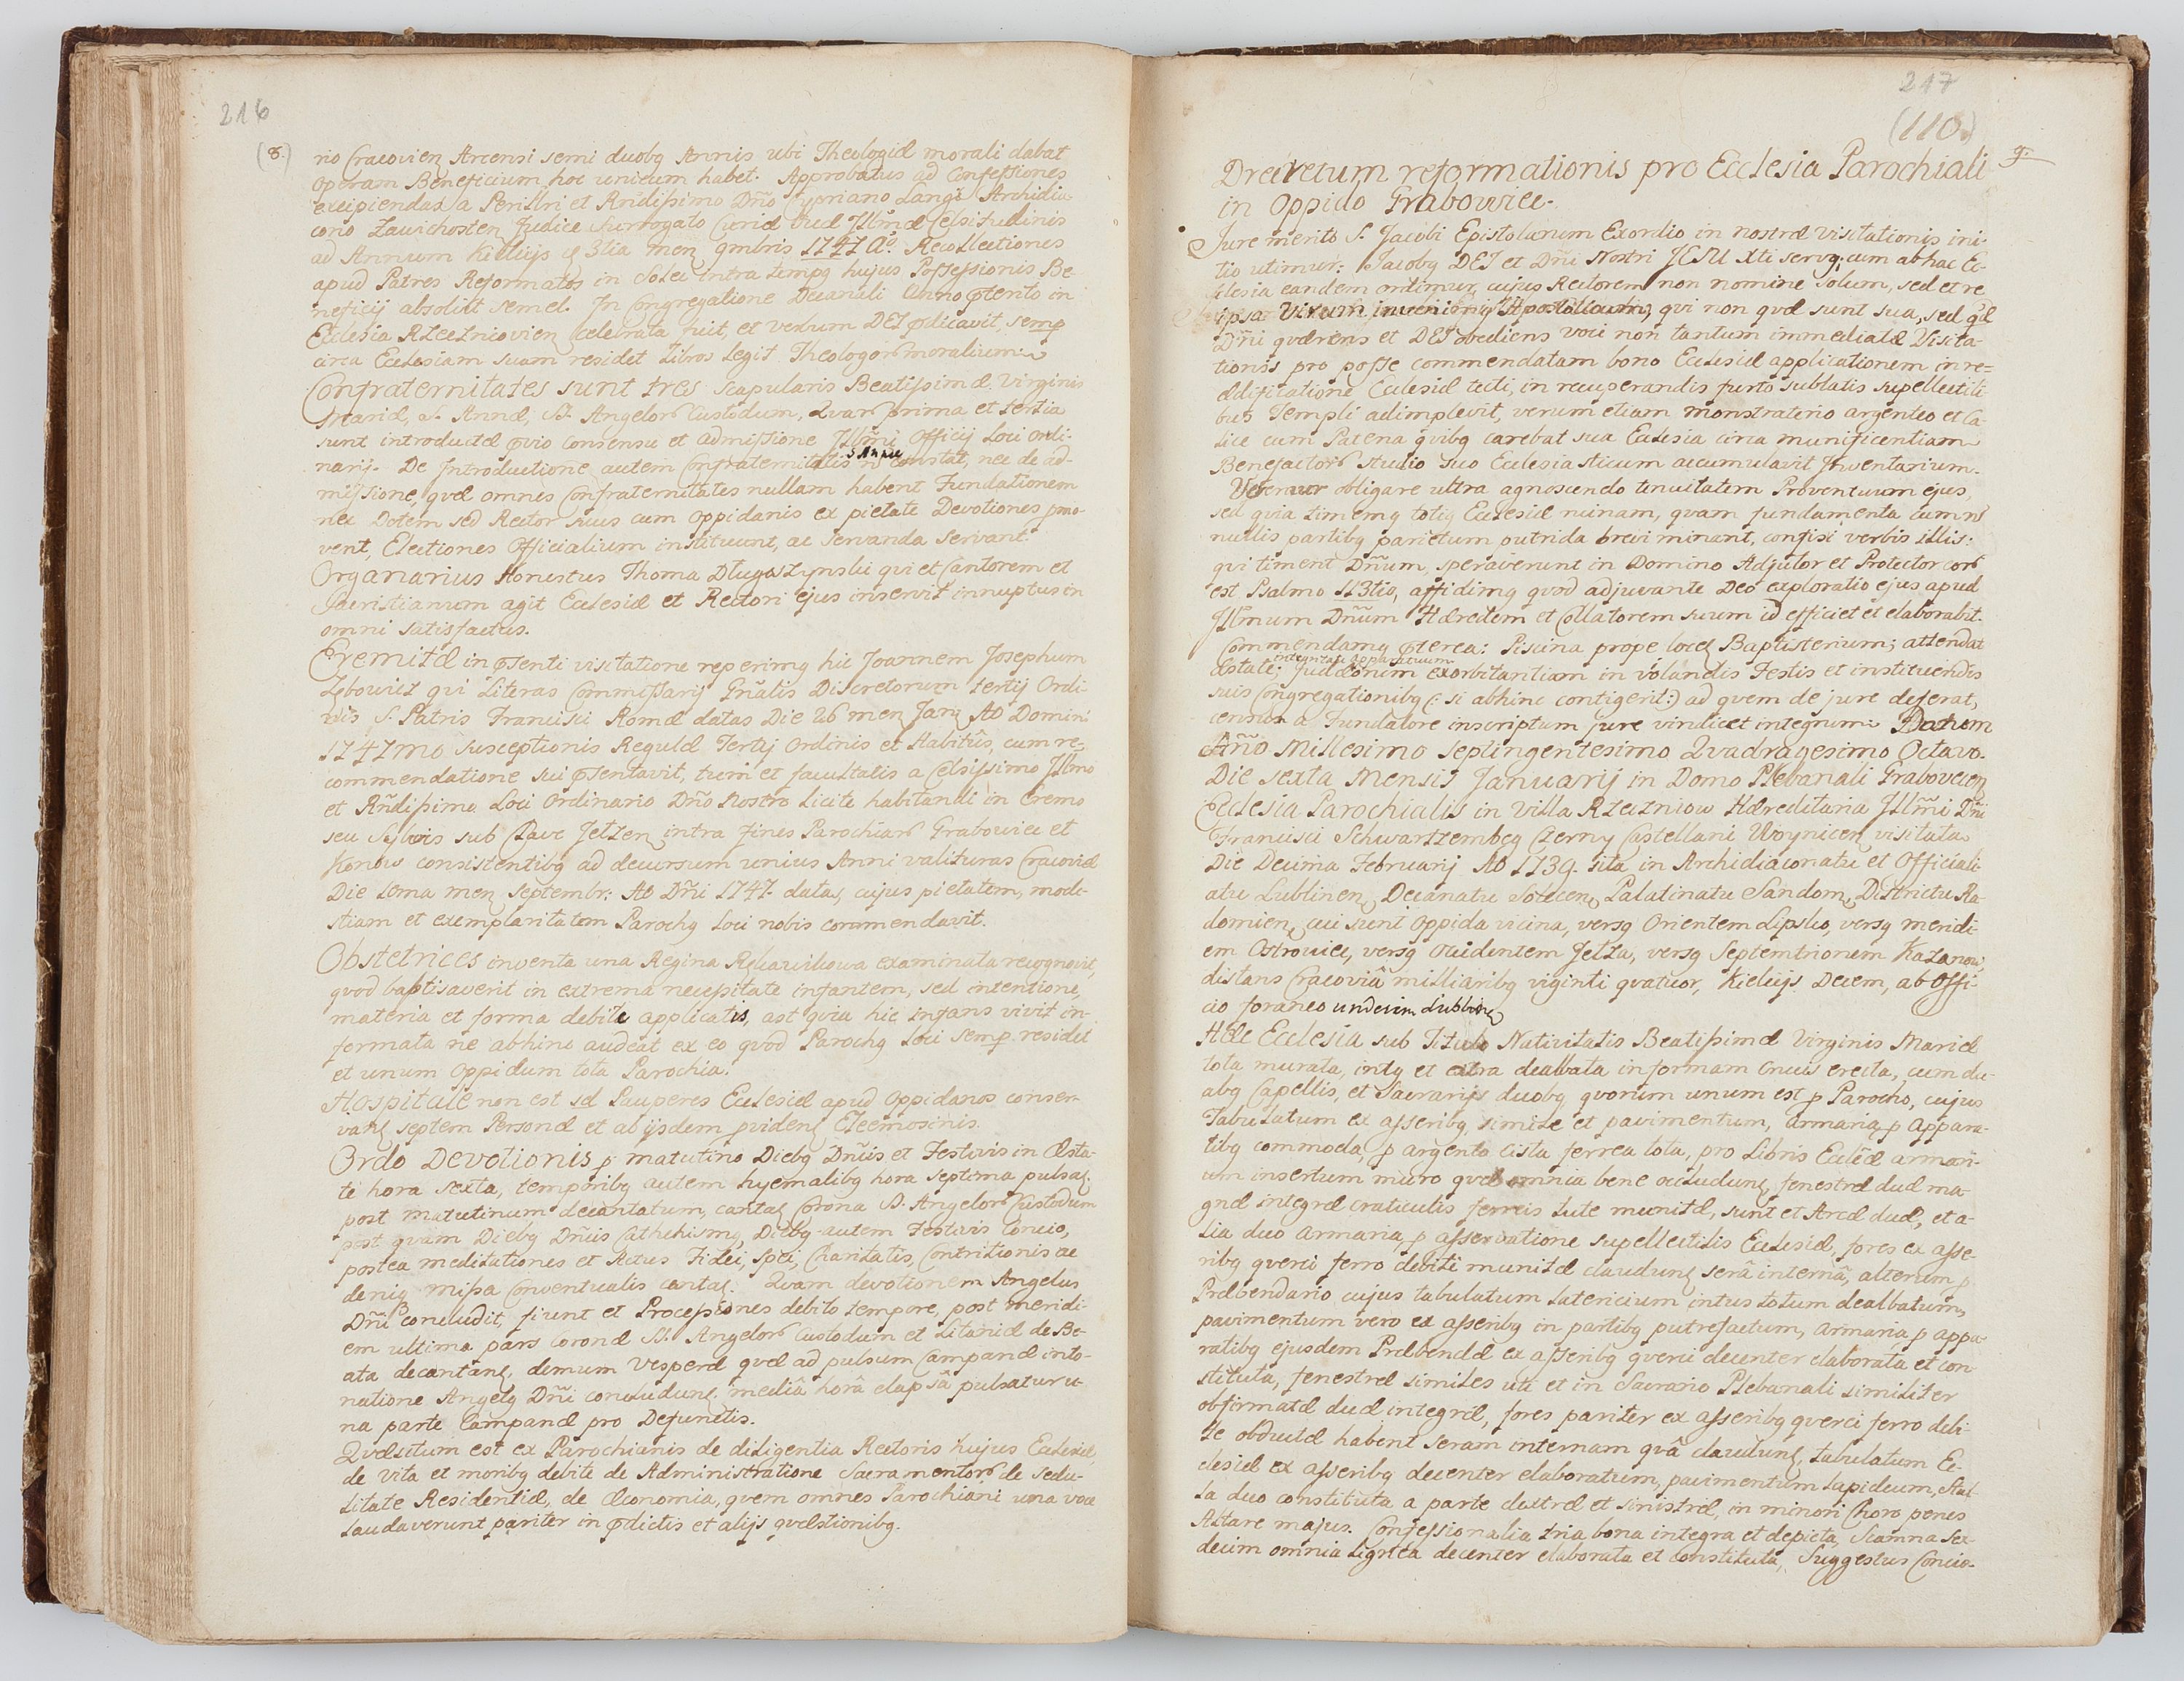 216
(8.)
rio Cracovien Arcensi semi duobq Annis ubi Theologiæ morali dabat
operam Beneficium hoc unicum habet. Approbatus ad Confessiones
excipiendas a Perillri et Rndissimo Dño Cypriano Langi Archidia-
cono Zawichosten Judice Surrogato Curiæ suæ Illmæ Celsitudinis
ad Annum Kielcijs 3tia men 9mbris 1747 Aº. Recollectiones
apud Patres Reformatos in Solec intra tempq hujus Possessionis Be-
neficij absolvit semel. In Congregatione Decanali Anno præterito in
Ecclesia Rzeczniovien celebrata fuit, et verbum DEI prædicavit, semp
circa Ecclesiam suam residet Libros legit Theologor moralium
Confraternitates sunt tres scapularis Beatissimæ Virginis
Mariæ, S. Annæ, SS. Angelor Custodum, Qvar prima et tertia
sunt introductæ prævio Consensu et admissione Illmi Officij Loci Ordi-
narij. De Introductione autem Confraternitatis S Annæ ñ constat, nec de ad-
missione, qvæ omnes Confraternitates nullam habent Fundationem
nec Dotem sed Rector suus cum oppidanis ex pietate Devotiones pmo-
vent, Electiones Officialium instituunt, ac servanda servant
Organarius Honestus Thoma Długoszynski qvi et Cantorem et
Sacristianum agit Ecclesiæ et Rectori ejus inservit innuptus in
omni satisfactus.
Eremitæ in præsenti visitatione reperimq hic Joannem Josephum
Zębowicz qvi Literas Commissarij Gñalis Discretorum tertij Ordi-
nis S. Patris Francisci Romæ datas Die 26 men Janȝ Ao Domini
1747mo susceptionis Regulæ Tertij Ordinis et Habitûs, cum re=
commendatione sui præsentavit, tum et facultatis a Celsissimo Illmo
et Rñdissimo Loci Ordinario Dño Nostro licite habitandi in Eremo
seu Sylvis sub Clave Jetzen intra fines Parochiar Grabowiec et
Konow consistentibq ad decursum unius Anni valituras Cracoviæ
Die 10ma men Septembr: Ao Dñi 1747 datas, cujus pietatem, mode-
stiam et exemplaritatem Parochq Loci nobis commendavit.
Obstetrices inventa una Regina examinata recognovit,
qvod baptisaverit in extrema necessitate infantem, sed intentione,
materia et forma debite applicatis, ast qvia hic infans vivit in-
formata ne abhinc audeat ex eo qvod Parochq Loci semp residet
et unum Oppidum tota Parochia.
Hospitale non est sd Pauperes Ecclesiæ apud oppidanos conser-
vanȝ septem Personæ et ab ijsdem pvidenȝ Eleemosinis.
Ordo Devotionis p matutino Diebq Dñis et Festivis in Æsta-
te hora sexta, temporibq autem hyemalibq hora septima pulsaȝ
post matutinum decantatum, cantaȝ Corona SS. Angelor Custodum
post qvam Diebq Dñis Cathehismq, Diebq autem Festivis Concio,
postea meditationes et Actus Fidei, Spei, Charitatis, Contritionis ac
deniq Missa Conventualis cantaȝ. Qvam devotionem Angelus
Dñi concludit, fiunt et Processiones debito tempore, post meridi-
em ultima pars coronæ SS. Angelor Custodum et Litaniæ de Be-
ata decantanȝ, demum Vesperæ qvæ ad pulsum Campanæ into-
natione Angelq Dñi concludunȝ, mediâ horâ elapsâ pulsatur u-
na parte Campanæ pro Defunctis.
Qvæsitum est ex Parochianis de diligentia Rectoris hujus Ecclesiæ,
de vita et moribq debite de Administratione Sacramentor de sedu-
litate Residentiæ, de Œconomia, qvem omnes Parochiani una voce
laudaverunt pariter in prædictis et alijs qvæstionibq.
217
(110.)
9.
Decretum reformationis pro Ecclesia Parochiali
in Oppido Grabowiec.
Jure merito S. Jacobi Epistolarum Exordio in nostræ visitationis ini-
tio utimur: Jacobq DEI et Dñi Nostri JESU Xti servq; cum ab hac Ec-
clesia eandem ordimur, cujus Rectorem non nomine solum, sed et re
ipsa Virum invenimq Apostolicum, qvi non qvæ sunt sua, sed qæ
Dñi qværens et DEI obediens voci non tantum immediatæ Visita-
tionis pro posse commendatam bono Ecclesiæ applicationem in re=
ædificatione Ecclesiæ tecti, in recuperandis furto sublatis supellectili-
bus Templi adimplevit, verum etiam monstraterio argenteo et Ca-
lice cum Patena qvibq carebat sua Ecclesia circa munificentiam
Benefactor studio suo Ecclesiasticum accumulavit Inventarium.
Veremur obligare ultra agnoscendo tenuitatem Proventuum ejus,
sed qvia timemq totiq Ecclesiæ ruinam, qvam fundamenta cum ñ
nullis partibq parietum putrida brevi minant, confisi verbis illis:
qvi timent Dñum, speraverunt in Domino Adjutor et Protector eor
est Psalmo 113tio, affidimq qvod adjuvante Deo exploratio ejus apud
Illmum Dñum Hæredem et Collatorem suum id efficiet et elaborabit.
Commendamq præterea: Piscina prope loceȝ Baptisterium; attendat
Æstate, integritati apparatuum Judæorum exorbitantiam in violandis Festis et instituendis
suis Congregationibq (: si abhinc contigerit :) ad qvem de jure deferat,
census a Fundatore inscriptum jure vindicet integrum. Datum
Año Millesimo Septingentesimo Qvadragesimo Octavo.
Die Sexta Mensis Januarij in Domo Plebanali Grabovecen
Ecclesia Parochialis in Villa Rzeczniow Hæreditaria Illmi Dñi
Francisci Schwartzemberg Czerny Castellani Woynicen visitata
Die Decima Februarij Ao 1739. sita in Archidiaconatu et Officiali-
atu Lublinen, Decanatu Solecen, Palatinatu Sandom, Districtu Ra-
domien, cui sunt Oppida vicina, versq Orientem Lipsko, versq meridi-
em Ostrowiec, versq Occidentem Jetza, versq Septemtrionem Kazanow,
distans Cracoviâ milliaribq viginti qvatuor, Kielcijs Decem, ab Offi-
cio foraneo undecim Lublinen
Hæc Ecclesia sub Titulo Nativitatis Beatissimæ Virginis Mariæ
tota murata, intq et extra dealbata in formam Crucis erecta, cum du-
abq Capellis, et Sacrarijs duobq qvorum unum est p Parocho, cujus
Tabulatum ex asseribq, simile et pavimentum, armaria p appara-
tibq commoda, p argento cista ferrea tota, pro Libris Ecclæ armari-
um insertum muro qvæ omnia bene occludunȝ, fenestræ duæ ma-
gnæ integræ craticulis ferreis tute munitæ, sunt et Arcæ duæ, et a-
lia duo armaria, p asservatione supellectilis Ecclesiæ, fores ex asse-
ribq querci ferro debiti munitæ claudunȝ serâ internâ, alterum p
Præbendario cujus tabulatum latericium intus totum dealbatum,
pavimentum vero ex asseribq in partibq putrefactum, armaria p appa-
ratibq ejusdem Præbendæ ex asseribq querci decenter elaborata et con-
stituta, fenestræ similes uti et in Sacrario Plebanali similiter
obfirmatæ duæ integræ, fores pariter ex asseribq querci ferro debi-
te obductæ habent seram internam qvâ claudunȝ, tabulatum Ec-
clesiæ ex asseribq decenter elaboratum, pavimentum lapideum, stal-
la duo constituta a parte dextræ et sinistræ, in minori Choro penes
Altare majus. Confessionalia tria bona integra et depicta, Scamna se-
decim omnia lignea decenter elaborata et constituta, Suggestus Concio-